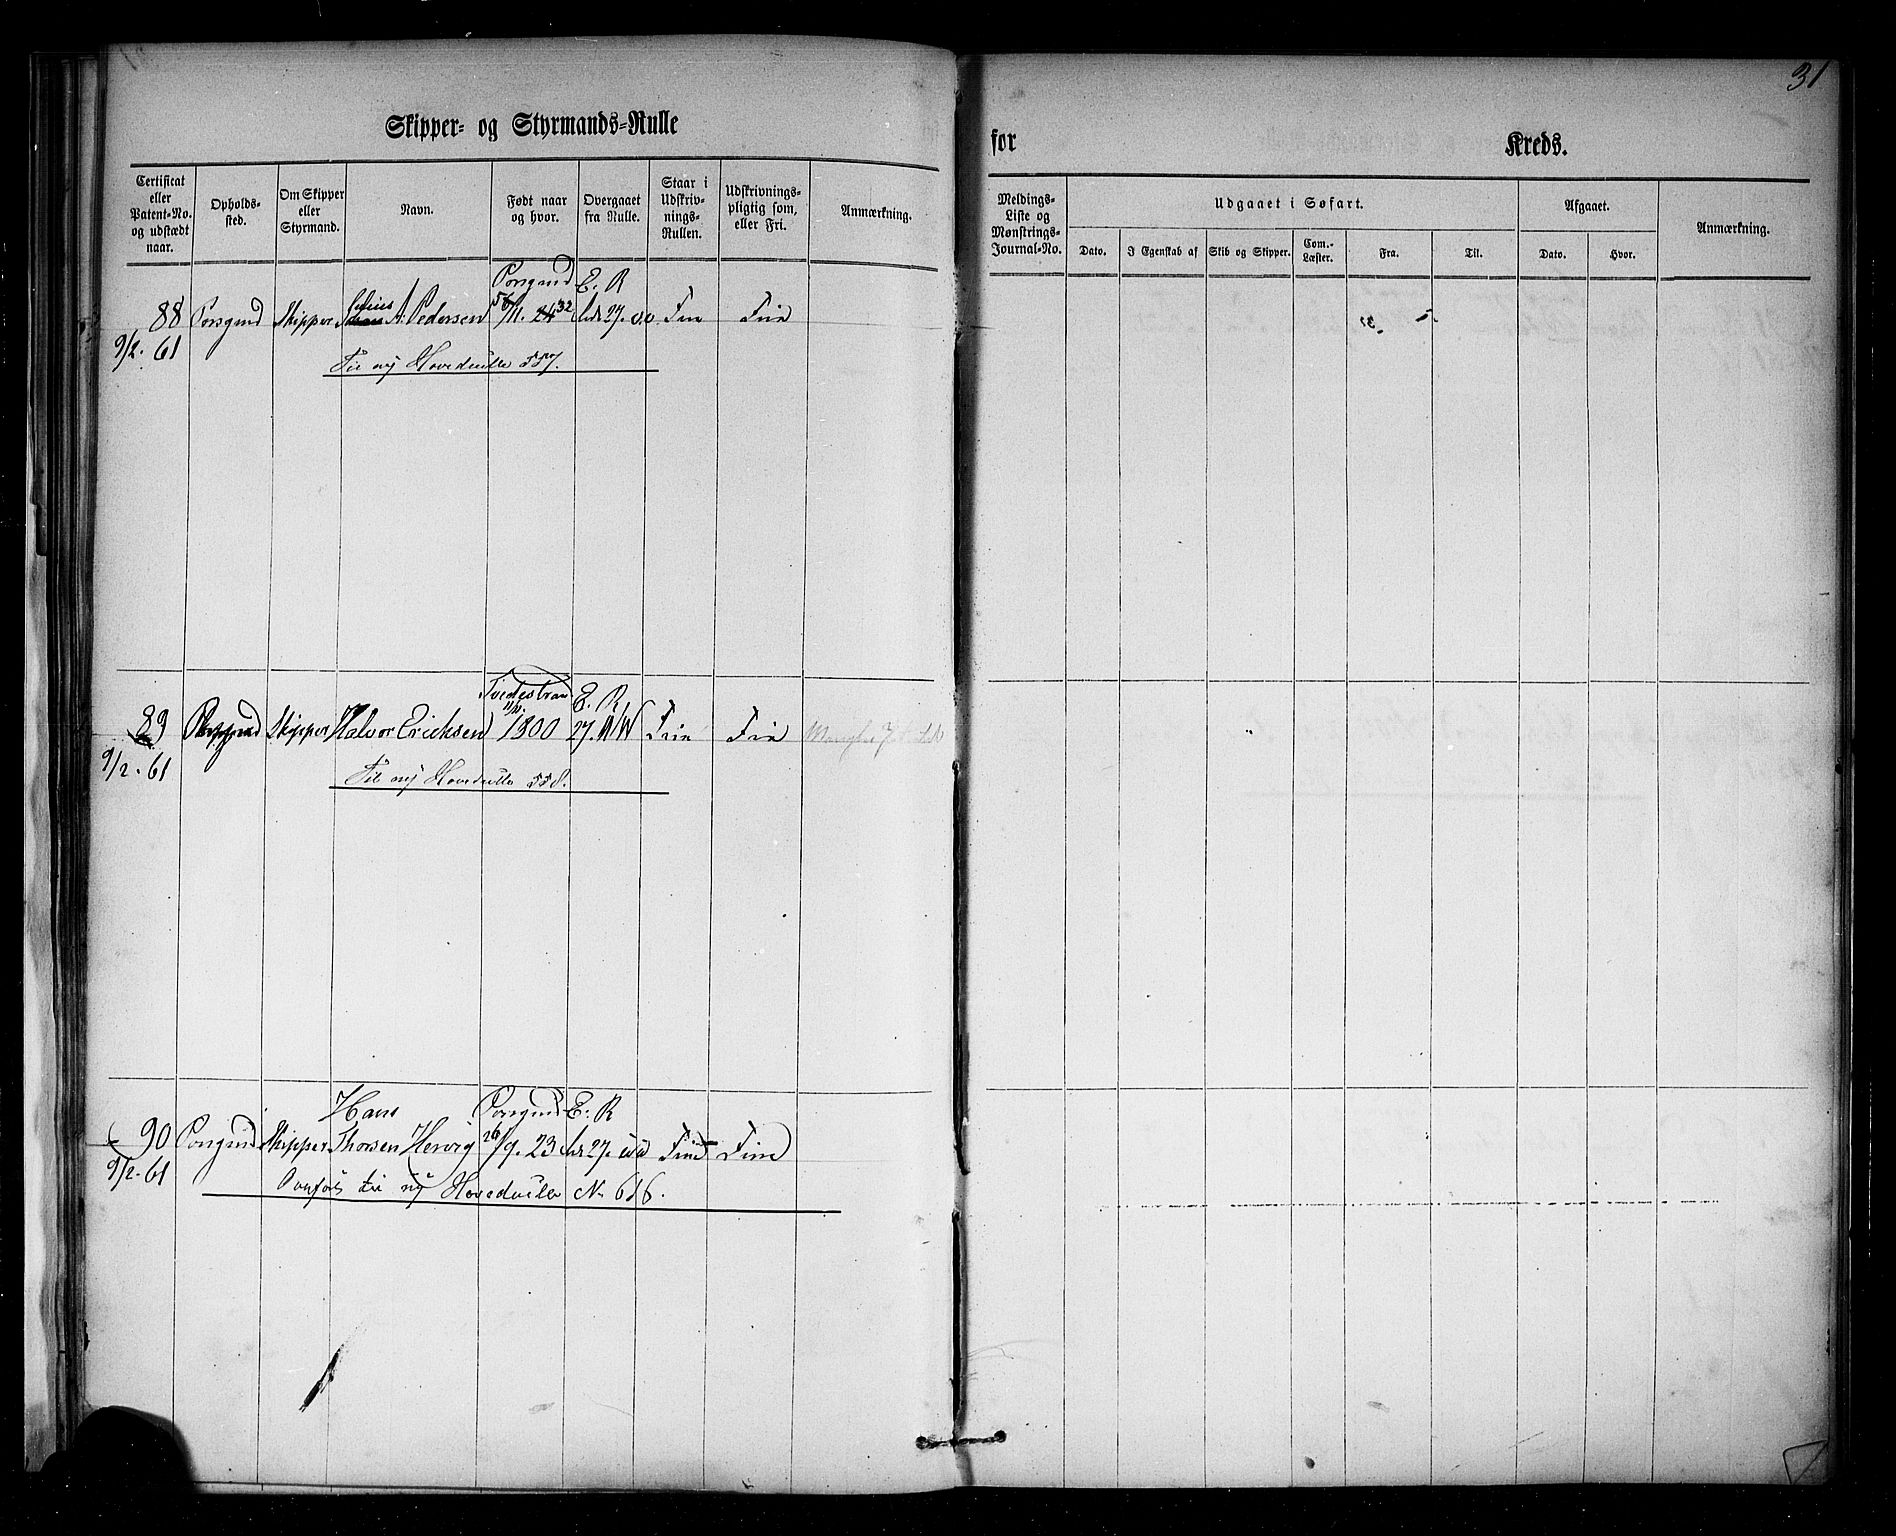 31
Skipper- og Styrmands-Rulle
for Kreds.
Certificat eller Patent-No. og udstædt naar.
Opholds-sted.
Om Skipper eller Styrmand.
Navn.
Født naar og hvor.
Overgaaet fra Rulle.
Staar i Udskriv-nings-Rullen.
Udskrivnings-pligtig som, eller Fri.
Anmærkning.
Meldings-Liste og Mønstrings-Journal-No.
Udgaaet i Søfart.
Dato. I Egenskab af Skib og Skipper. Com.-Læster. Fra. Til.
Afgaaet.
Dato. Hvor.
Anmærkning.
Porsgrund E. R
88 Porsgrund Skipper A. Pedersen 32 27. Frie Frie
9/2. 61
Til ny Hovedrulle 557.
Tvedestrand E. R
89 Porsgrund Skipper Halvor Ericksen 1800 27. Frie Frie
9/2. 61
Til ny Hovedrulle 558.
Hans Porsgrund E. R
90 Porsgrund Skipper Thorsen Hervig 26/9. 23 27. Frie Frie
9/2. 61
Overført til ny Hovedrulle No 616.